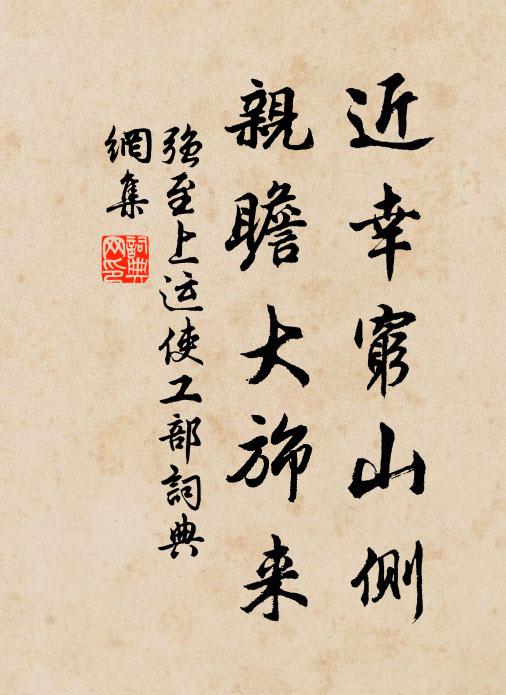 近幸窮山側
親瞻大斾来
强至上运使工部詞典
網集
詞典网印